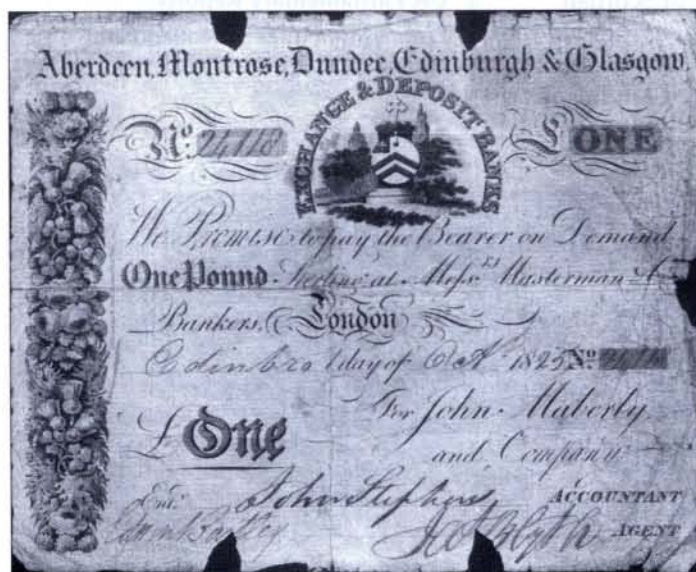 Aberdeen, Montrose, Dundee, Edinburgh & Glasgow,
EXCHANGE & DEPOSIT BANKS
No. £ ONE
We Promise to pay the Bearer on Demand
One Pound Sterling at Messrs Masterman & Co
Bankers, London
Edinbro 1 day of Oct 1825 No.
£ One For John Maberly
and Company
Ent. John Stephens ACCOUNTANT
AGENT